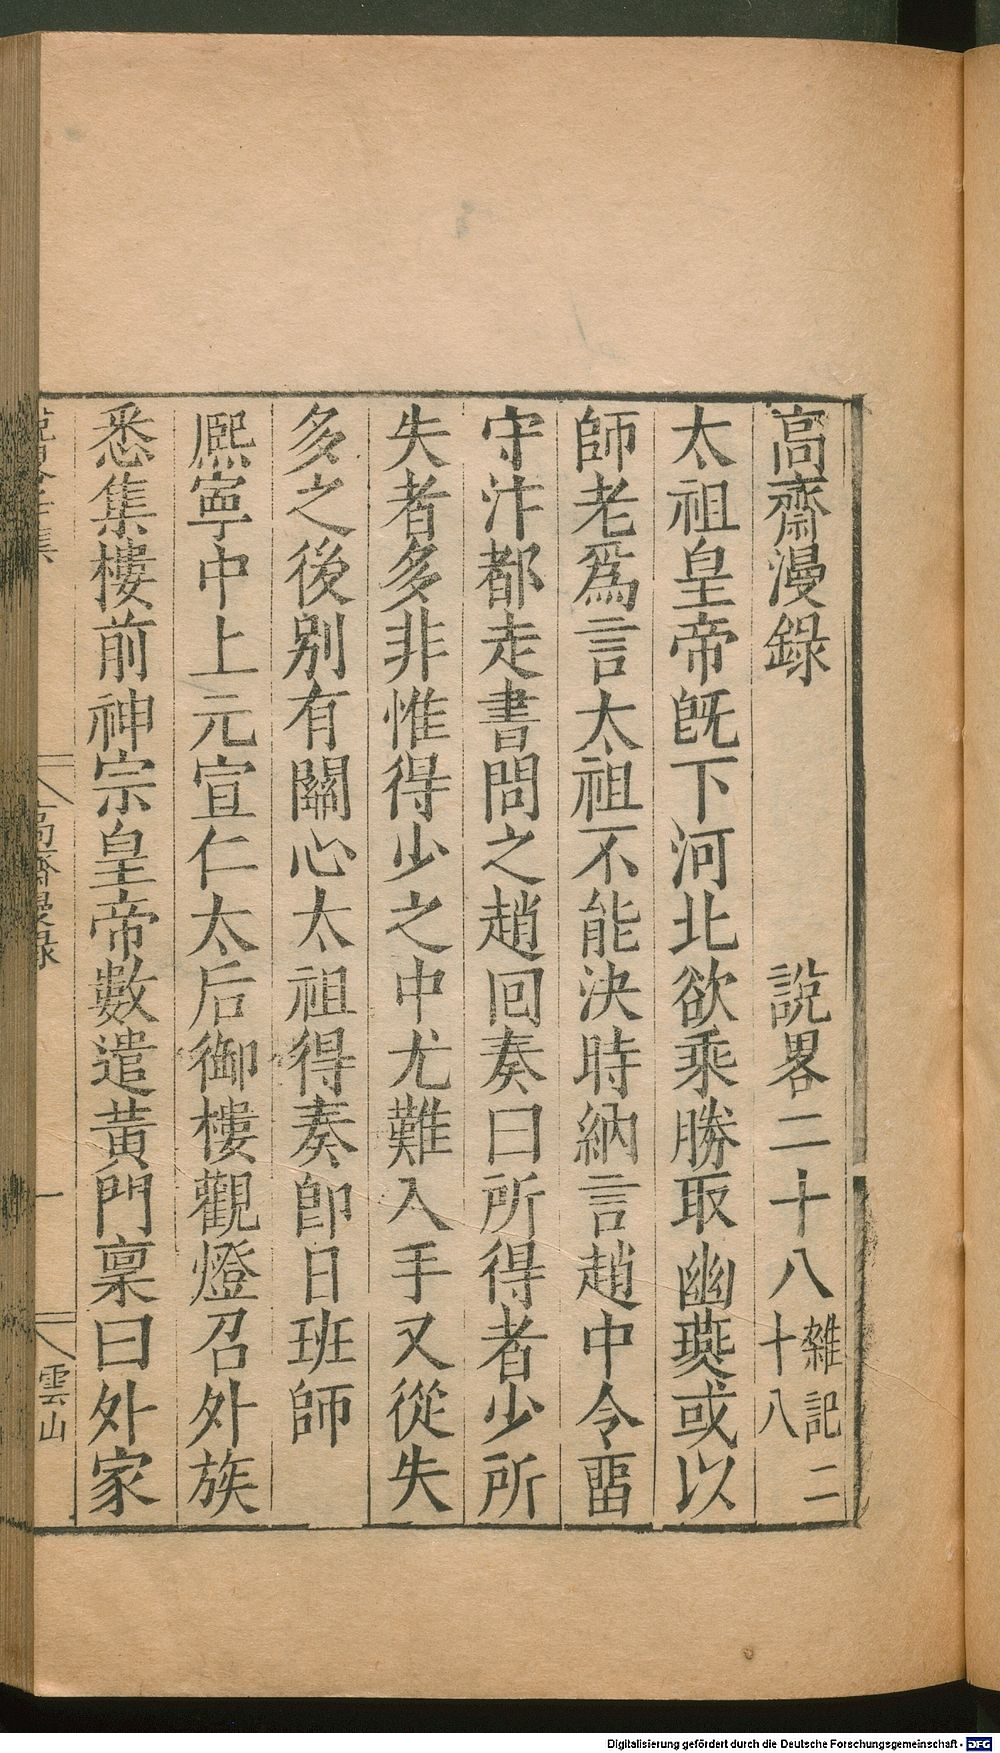 高齋漫錄　說畧二十八 雜記二十八
太祖皇帝既下河北欲乘勝取幽燕或以
師老爲言太祖不能決時納言趙中令畱
守汴都走書問之趙回奏曰所得者少所
失者多非惟得少之中尤難入手又從失
多之後別有關心太祖得奏卽日班師
熈寧中上元宣仁太后御樓觀燈召外族
悉集樓前神宗皇帝數遣黃門稟曰外家
高齋漫錄 一 雲山
Digitalisierung gefördert durch die Deutsche Forschungsgemeinschaft - DFG